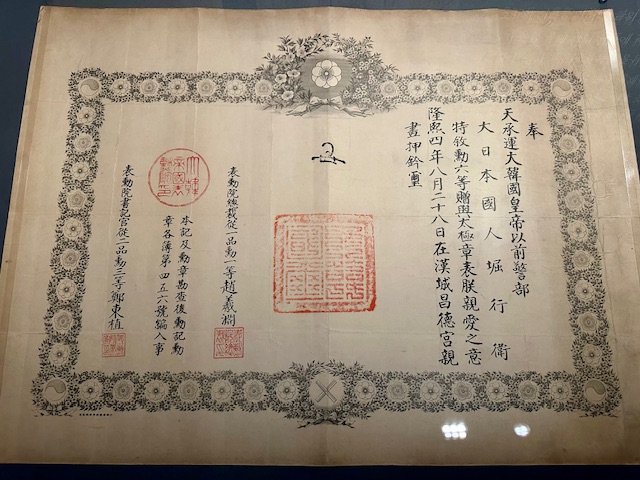 奉
天承運大韓國皇帝以前警部
大日本國人堀行衛
特敘勳六等贈與太極章表朕親愛之意
隆熙四年八月二十八日在漢城昌德宮親
畫押鈐璽
表勳院總裁從一品勳一等趙羲淵
本記及勳章勘查後勳記勳
章各簿第四五六號編入事
表勳院書記官從二品勳三等鄭東植